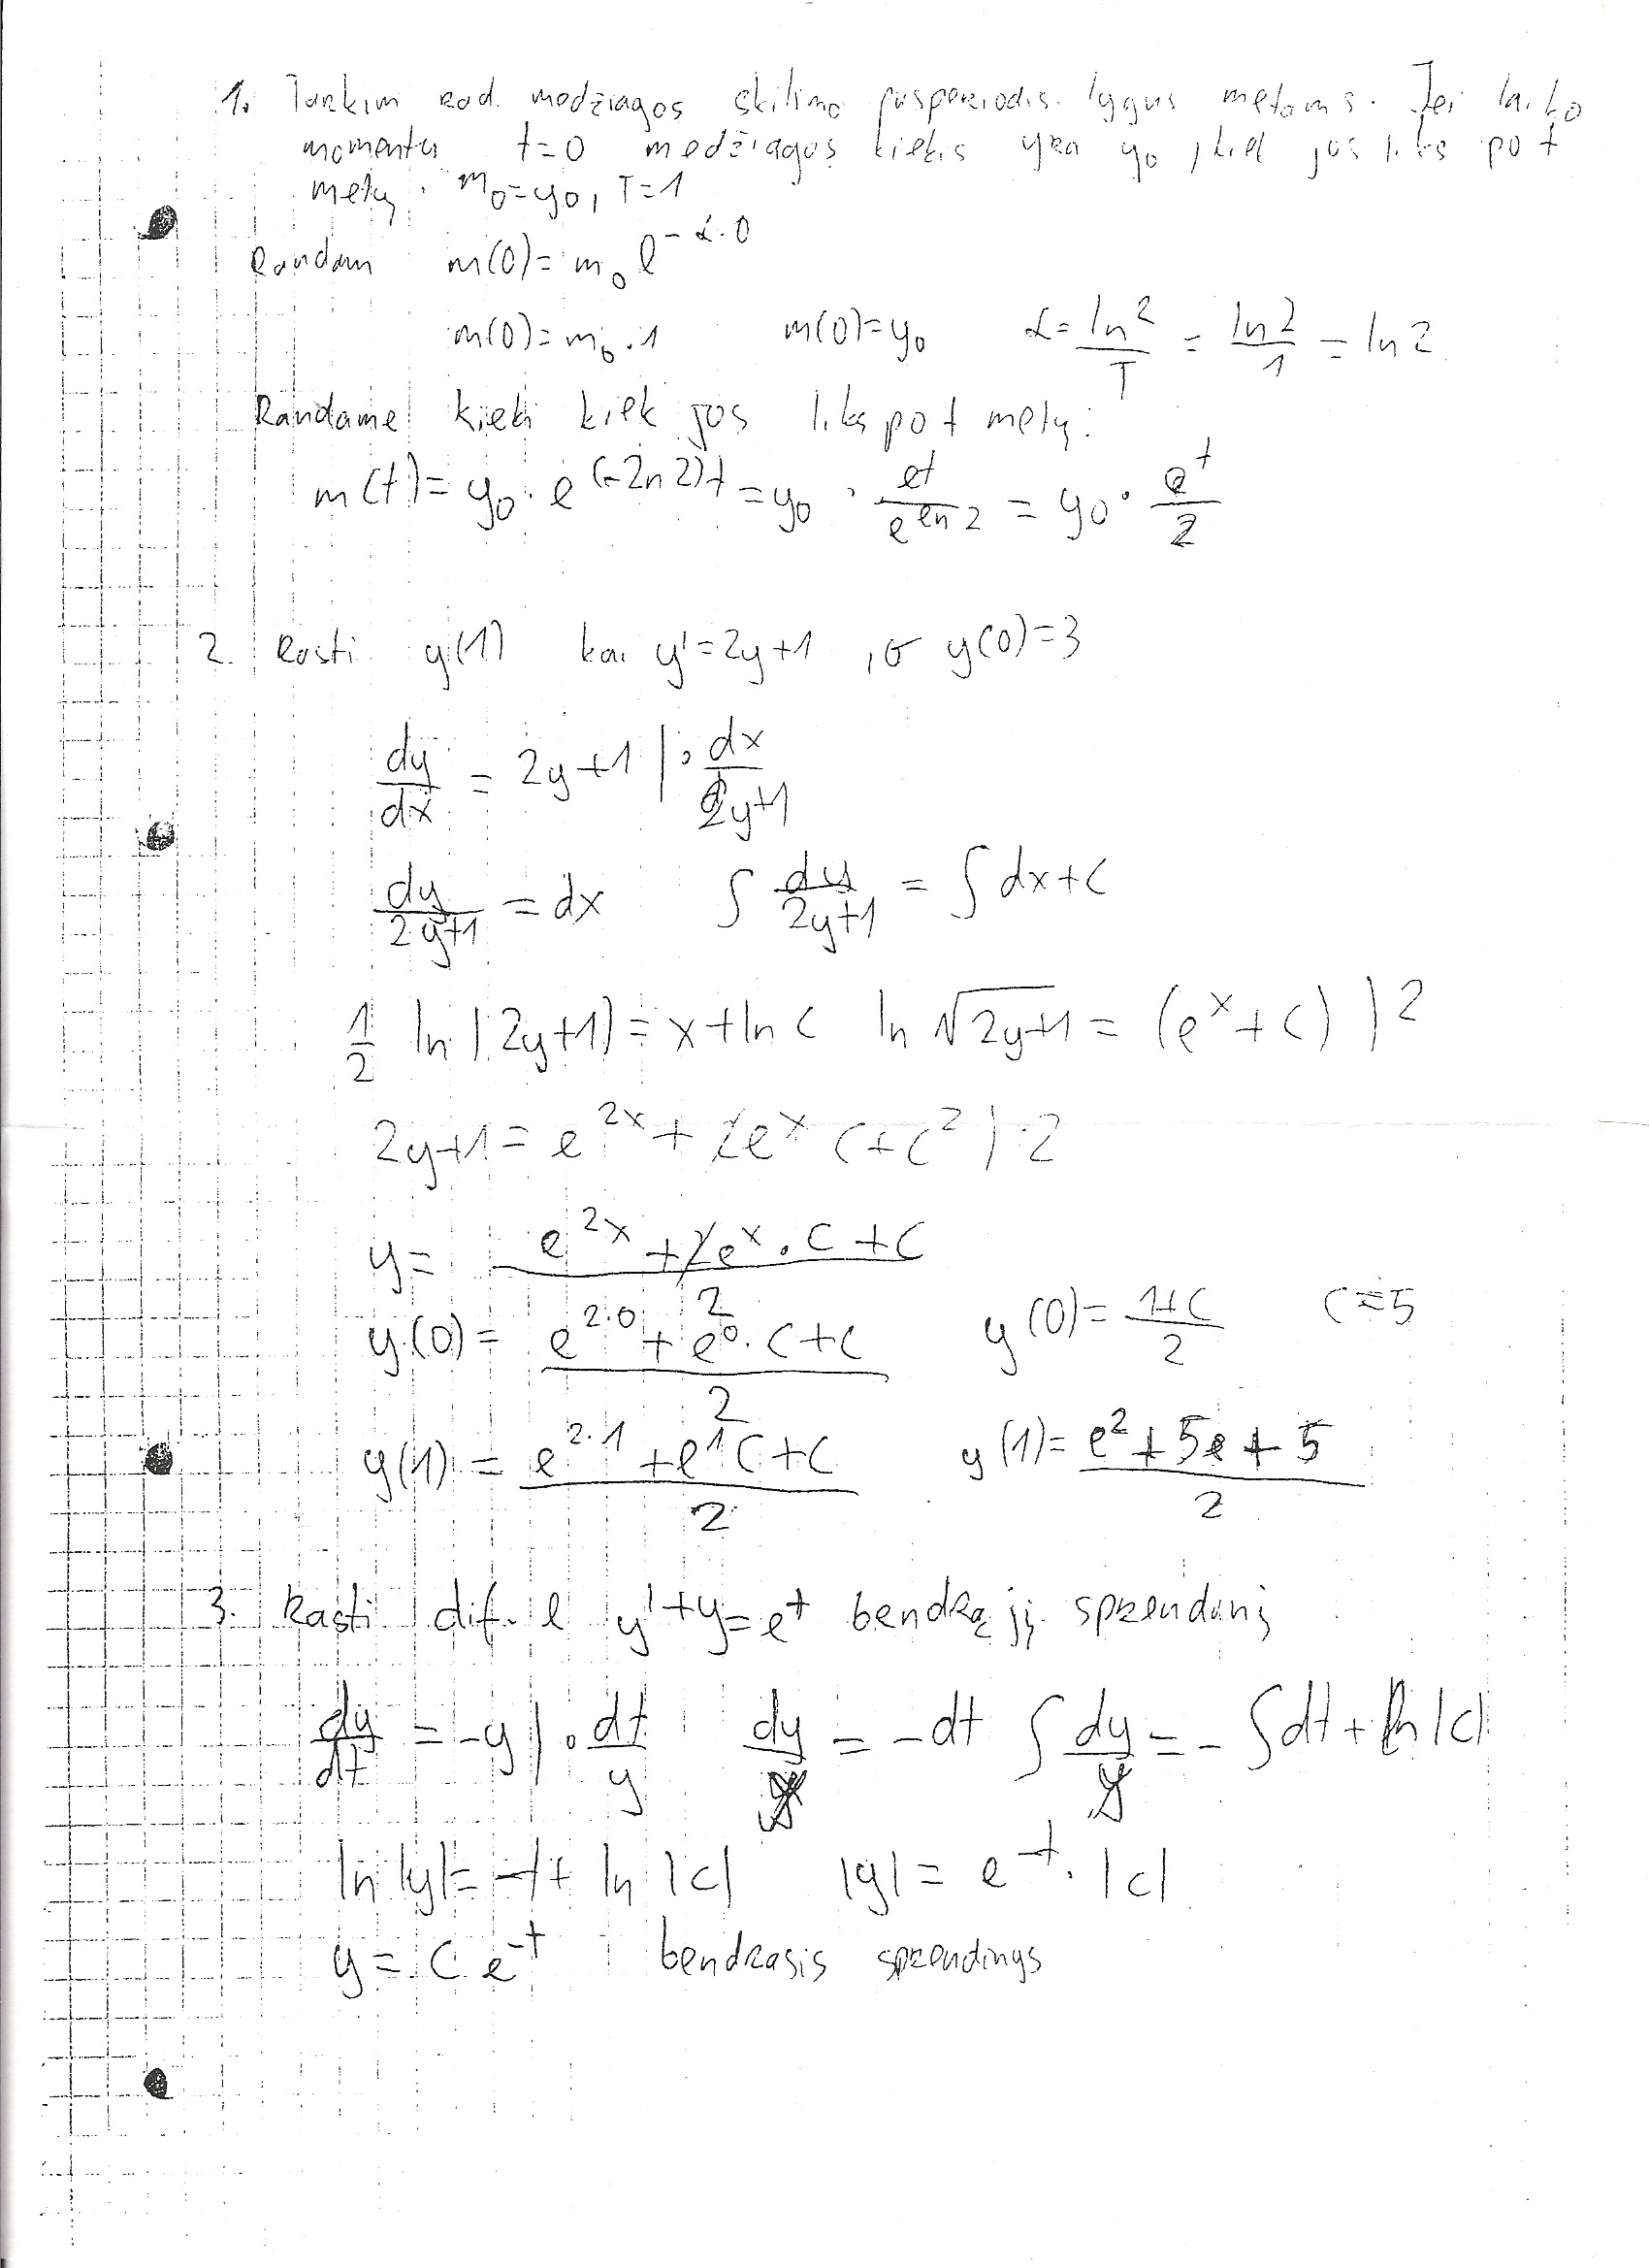 1. Tarkim rad. medžiagos skilimo pusperiodis lygus metams. Jei laiko
momentu t=0 medžiagos kiekis yra y₀, kiek jos liks po t
metų. m₀=y₀, T=1
Randam m(0)=m₀ℓ^(-α·0)
m(0)=m₀·1 m(0)=y₀ α=ln2/T = ln2/1 = ln2
Randame kiekį kiek jos liks po t metų:
m(t)=y₀·e^((-ln2)t)=y₀·e^t/e^(ln2) = y₀·e^t/2
2. Rasti y(1) kai y'=2y+1, o y(0)=3
dy/dx = 2y+1 |·dx/(2y+1)
dy/(2y+1) = dx ∫dy/(2y+1) = ∫dx+C
1/2 ln|2y+1|=x+lnC ln√(2y+1) = (e^x+C) |²
2y+1=e^(2x)+2e^x C+C² |:2
y=(e^(2x)+2e^x·C+C)/2
y(0)=(e^(2·0)+e^0·C+C)/2 y(0)=(1+C)/2 C=5
y(1)=(e^(2·1)+e^1C+C)/2 y(1)=(e²+5e+5)/2
3. Rasti dif. l y'+y=e^t bendrąjį sprendinį
dy/dt=-y |·dt/y dy/y=-dt ∫dy/y=-∫dt+ln|C|
ln|y|=-t+ln|C| |y|=e^(-t)·|C|
y=Ce^(-t) bendrasis sprendinys